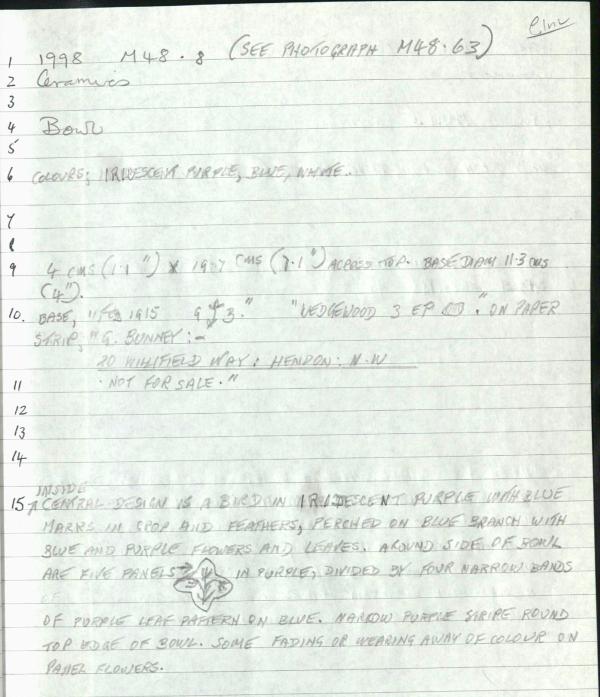 1 1998 M48.8 (SEE PHOTOGRAPH M48.63)
2 Ceramics
3
4 Bowl
5
6 COLOURS; IRIDESCENT PURPLE, BLUE, WHITE.
7
8
9 4 cms (1.1") x 19.7 cms (7.1") ACROSS TOP. BASE DIAM 11.3 cms
(4").
10. BASE, "FEB 1915 9 3." "WEDGEWOOD 3 EP ." ON PAPER
STRIP, "G. BUNNEY :-
20 WILLIFIELD WAY: HENDON: N.W
11 . NOT FOR SALE."
12
13
14
INSIDE
15 CENTRAL DESIGN IS A BIRD IN IRIDESCENT PURPLE WITH BLUE
MARKS IN CROP AND FEATHERS, PERCHED ON BLUE BRANCH WITH
BLUE AND PURPLE FLOWERS AND LEAVES. AROUND SIDE OF BOWL
ARE FIVE PANELS IN PURPLE, DIVIDED BY FOUR NARROW BANDS
OF
OF PURPLE LEAF PATTERN ON BLUE. NARROW PURPLE STRIPE ROUND
TOP EDGE OF BOWL. SOME FADING OR WEARING AWAY OF COLOUR ON
PANEL FLOWERS.